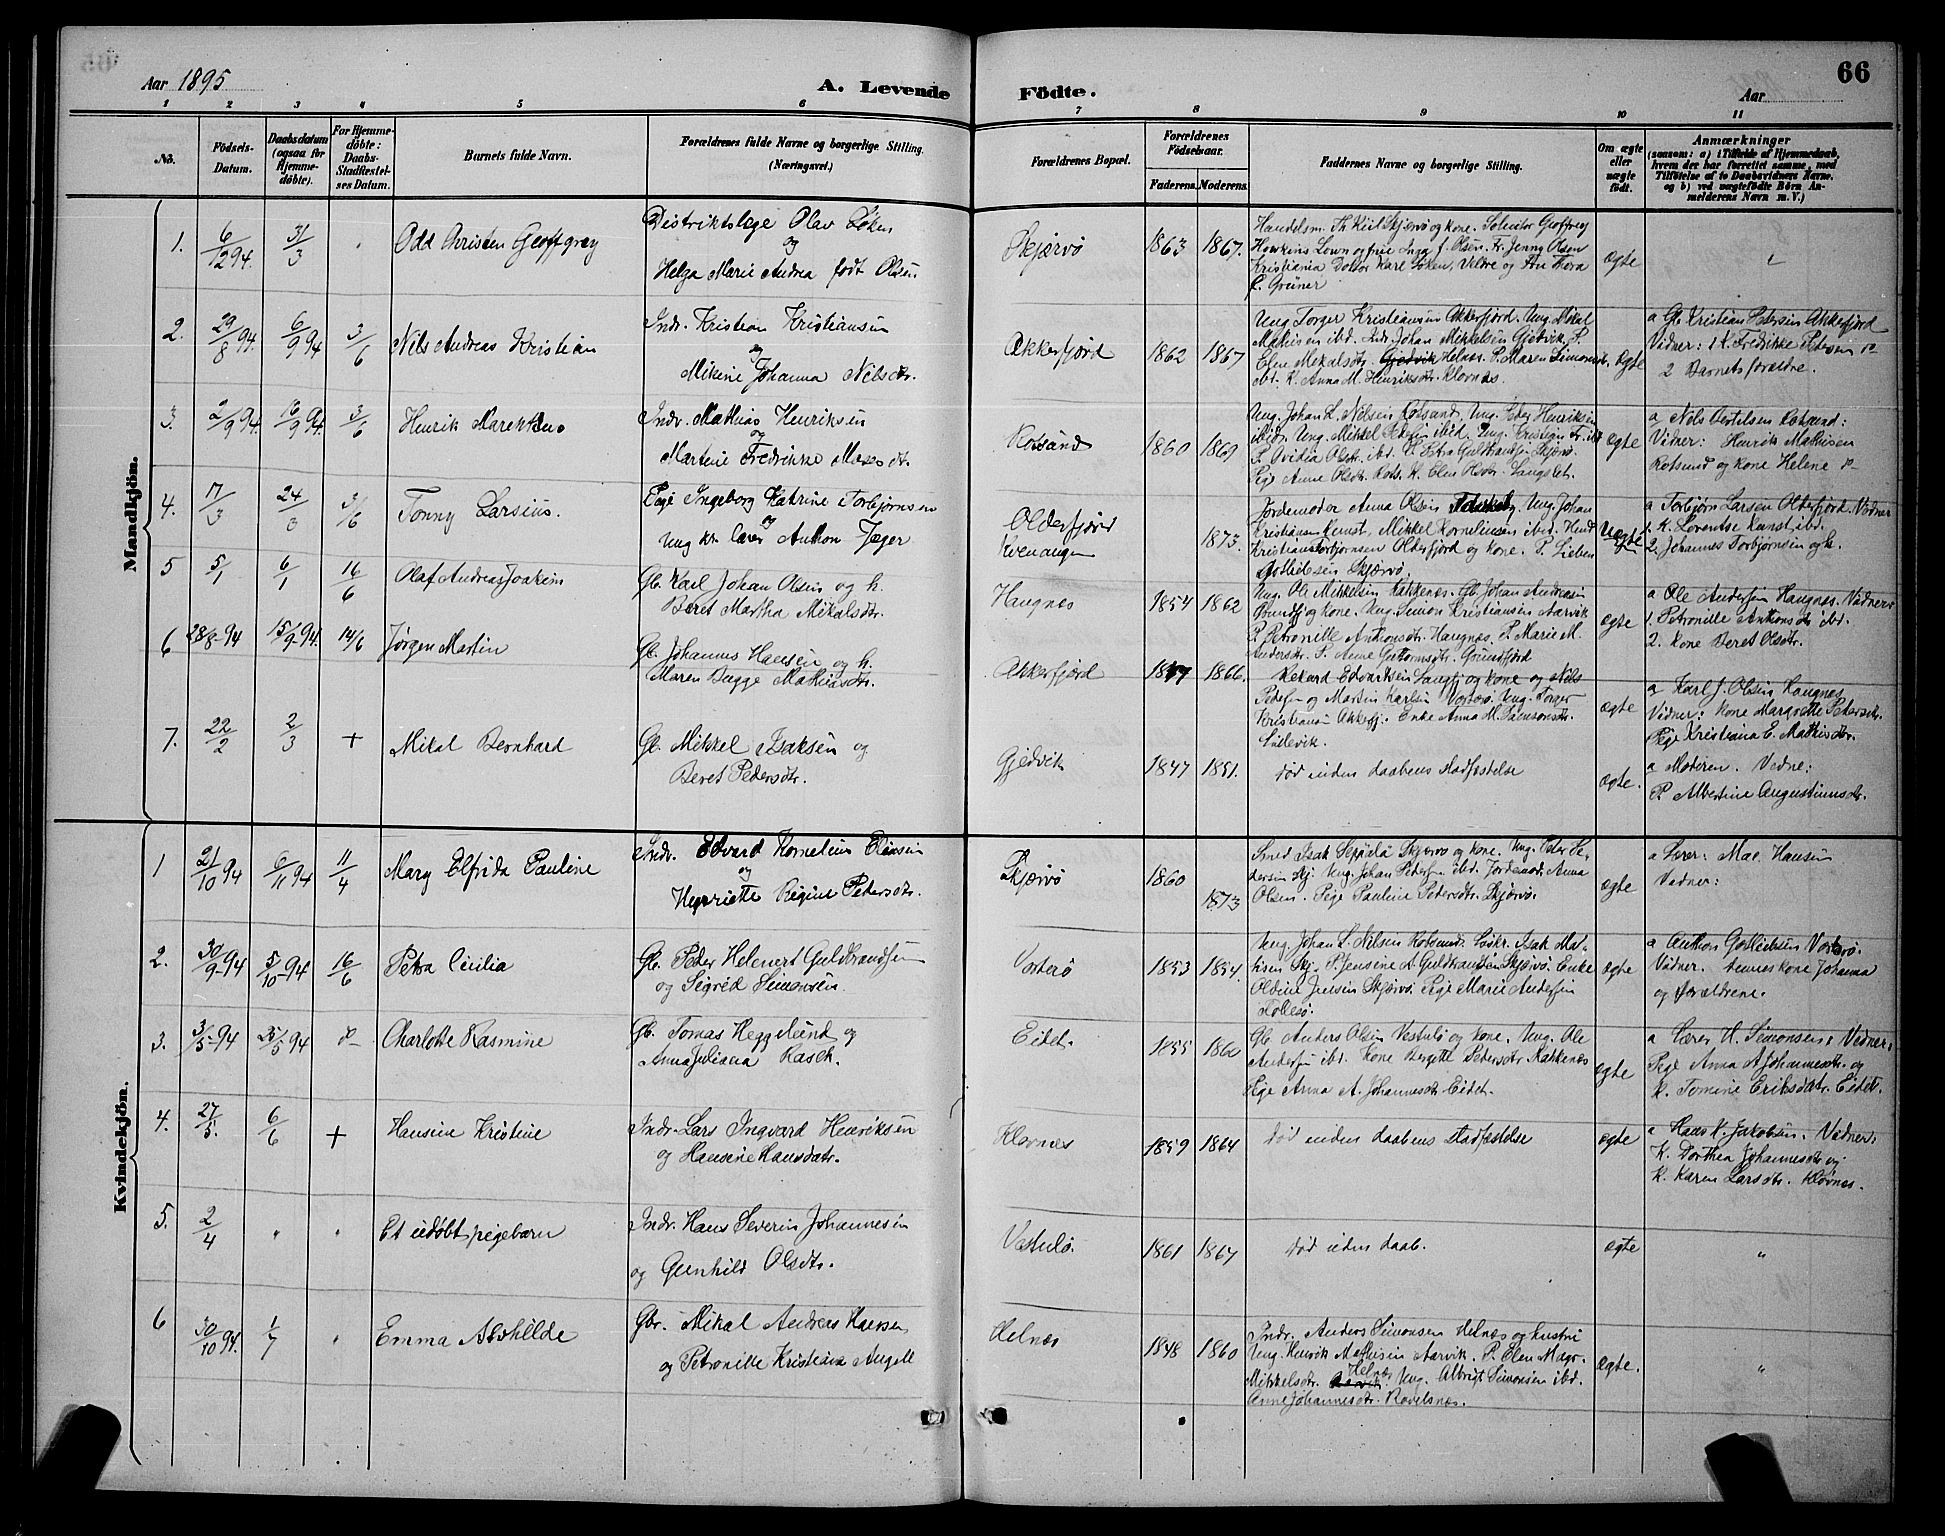 66
Aar 1895
A. Levende Födte.
Aar
1 2 3 4 5 6 7 8 9 10 11
No.
Födsels-Datum.
Daabsdatum (ogsaa for Hjemme-döbte).
For Hjemme-döbte: Daabs-Stadfæstel-ses Datum.
Barnets fulde Navn.
Forældrenes fulde Navne og borgerlige Stilling.
(Næringsvei.)
Forældrenes Bopæl.
Forældrenes Födselsaar.
Faderens. Moderens.
Faddernes Navne og borgerlige Stilling.
Om ægte eller uægte födt.
Anmærkninger
(saasom: a) i Tilfælde af Hjemmedaab,
hvem der har forrettet samme, med
Tilföielse af to Daabsvidners Navne.
og b) ved uægtefödte Börn An-
melderens Navn m. V.)
Mandkjön.
1. 6/12 94. 31/3 Odd Christen Geoffgrey
Distriktslæge Olav Løken
og
Helga Marie Andrea født Olsen
Skjærvø 1863 1867.
Handelsm. Th Kiil Skjærvø og kone. Solicitor Geoffrey
Kristiania Doktor Karl Løken,
ægte
2. 29/8 94. 6/9 94 3/6 Nils Andreas Kristian
Indr. Kristian Kristiansen
og
Mikine Johanna Nilsdtr.
Akkerfjord 1862 1867
Ung. Torger Kristiansen Akkerfjord. Ung. Mikal
Mathisen ibd. Indr. Johan Mikkelsen Gjedvik, P.
Elen Mekalsdtr. Gjedvik Helnæs. P. Maren Simonsdtr.
ibd. K. Anna M. Henriksdtr. Klovnæs.
ægte
a Gb. Kristian Petersen Akkerfjord
Vidner: 1 K. Fredrikke Petersen
2 Barnets forældre.
3. 2/9 94. 16/9 94. 3/6 Henrik
Indr. Mathias Henriksen
og
Martine Fredrikke
Rotsund 1860 1869
Ung. Johan L. Nilsen Rotsund. Ung. Peder Henriksen
ibidn. Ung. Mikkel Pedersen ibid. Ung. Kristian
P. Ovidia Olsdtr. ibd.
Pige Anne Olsdtr. Rots. K. Elen
ægte
a Nils Bertelsen Rotsund:
Vidner: Henrik Mathisen
Rotsund og kone Helene
4. 17/3 24/3 3/6 Tonny Larsius.
Pige Ingeborg Katrine Torbjørnsen
og
Ung kv. lærer Anthon Jæger
Olderfjord
Kvenangen
1873.
Jordemoder Anna Olsen Ung. Johan
Kristiansen Kunst, Mikkel Korneliusen ibid.
Kristian Torbjørnsen Olderfjord og kone. P.
Gotlidesen Skjærvø.
Uægte
a Torbjørn Larsen Olderfjord. Vidner
1. K. Lorentse Kunst, ibd.
2. Johannes Torbjørnsen og h.
5 5/1 6/1 16/6 Olaf Andreas Joakim
Gb. Karl Johan Olsen og h.
Beret Martha Mikalsdtr.
Haugnæs 1854 1862
Ung. Ole Mikkelsen Kakkenæs. Gb. Johan Andreasen
Grundfj og kone. Ung. Simon Kristiansen Aarvik
P. Petronille Antonsdtr. Haugnæs. P. Marie M.
Andersdtr. P. Anne Guttormsdtr. Grundfjord
ægte
a Ole Andersen Haugnæs. Vidnere
1. Petronille Antonsdtr ibd.
2. kone Beret Olsdtr.
6 28/8-94 15/9-94. 14/6 Jørgen Martin
Gb. Johannes Hansen og h.
Maren Bugge Mathiasdtr.
Akkerfjord 1866.
Rekard Edvartsen Langfj og kone og Nils
Pedersen og Martin Karlsen Vorterø. Ung. Torger
Kristiansen Akkerfj. Enke Anna M. Samsonsdtr.
ægte
a Karl J. Olsen Haugnæs
Vidner: kone Margrethe Petersdtr.
Pige Kristiana E. Mathisdtr.
7. 22/2 2/3 + Mikal Bernhard
Gb. Mikkel Isaksen og
Beret Pedersdtr.
Gjedvik 1847 1851.
død inden daabens stadfæstelse
ægte.
a Moderen. Vidne:
P. Albertine Augustinusdtr.
Kvindekjön.
1 21/10 94 6/11 94 11/4 Mary Elfrida Pauline
Indr. Edvard Kornelius Eliasen
og
Henriette Regine Petersdtr.
Skjærvø 1860 1873
Smed Isak Seppälä Skjærvø og kone. Ung. Peter Pe-
dersen Skj. Ung. Johan Pedersen ibd. Jordemod. Anna
Olsen. Pige Pauline Pedersdtr. Skjærvø.
ægte
a Lærer: Mac. Hansen
Vidner:
2. 30/9-94 5/10-94 16/6 Petra Cicilia
Gb. Peder Helenert Guldbrandsen
og Sigrid Simonsen.
Vorterø 1853 1854.
Ung. Johan L. Nilsen Rotsund. Isak Ma-
tisen Skj. P. Jensine A. Guldbrandsen Skjærvø. Enke
Oldine Jensen Skjærvø. Pige Marie Andersen
Follesø.
ægte
a Anthon Gotlidesen Vorterø.
Vidner. hennes kone Johanna
og forældrene.
3. 3/5-94 25/5 94 Charlotte Rasmine
Gb. Tomas Heggelund og
Anna Juliana Rasch.
Eidet 1855 1860
Gb. Anders Olsen Vestulø og kone. Ung. Ole
Andersen ibd. Kone Bergitte Petersdtr Kakkenæs
Pige Anna A. Johannesdtr. Eidet.
ægte
a Lærer H. Simonsen: Vidner:
Pige Anna A Johannesdtr. og
K. Tomine Eriksdatr. Eidet.
4. 27/5. 6/6 + Hansine Kristine
Indr. Lars Ingvard Henriksen
og Hansine Hansdatr.
Klovnæs 1859 1864
død inden daabens stadfæstelse
ægte
a Hans K. Jakobsen. Vidner:
K. Dorthea Johannesdtr og
K. Karen Larsdtr. Klovnæs.
5. 2/4 Et udøbt pigebarn
Indr. Hans Severin Johannesen
og Gunhild Olsdtr.
Vestulø. 1861 1867
død uden daab.
ægte
"
6 30/10 94. 1/7 Emma Alvhilde
Gbr. Mikal Andreas Hansen
og Petronille Kristiana Angell
Helnæs 1848 1860
Indr. Anders Simonsen Helnæs og hustru
Ung. Henrik Mathisen Aarvik. P. Elen Magr.
Mikkelsdtr. Helnæs. Ung. Albrigt Simonsen ibd.
Anne Johannesdtr. Ravelsnæs.
ægte.
"